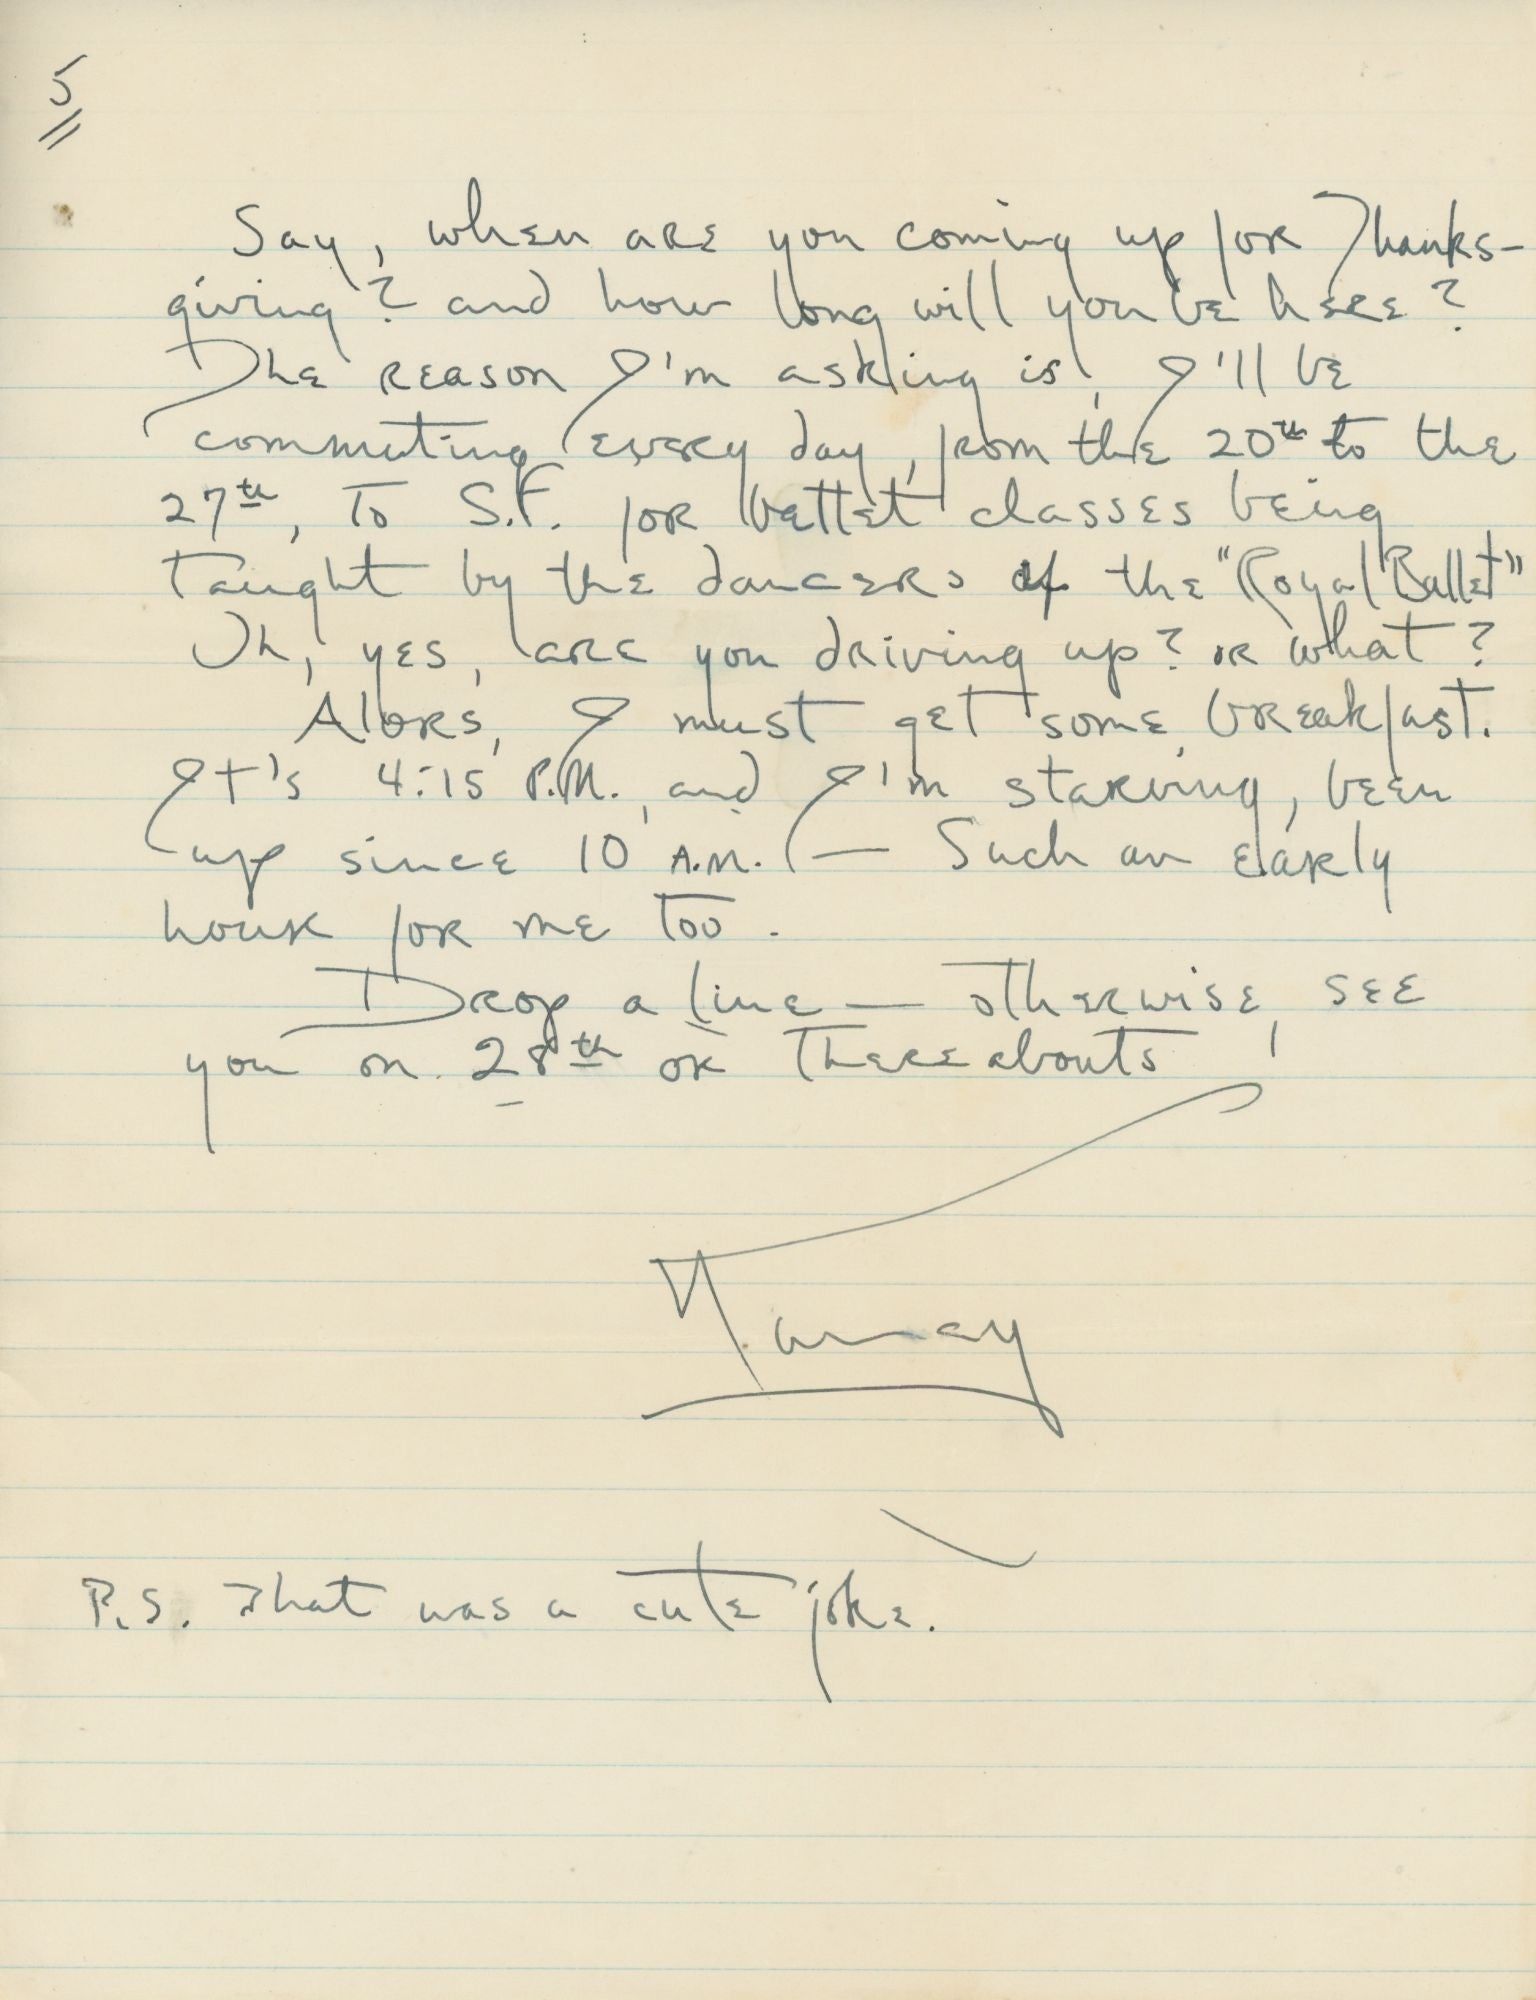 5
Say, when are you coming up for Thanks-
giving? and how long will you be here?
The reason I'm asking is, I'll be
commuting every day, from the 20th to the
27th, to S.F. for ballet classes being
taught by the dancers of the "Royal Ballet"
Oh, yes, are you driving up? or what?
Alors, I must get some breakfast.
It's 4:15 P.M., and I'm starving, been
up since 10 A.M. — Such an early
hour for me too.
Drop a line — otherwise, see
you on 28th or thereabouts
P.S. That was a cute joke.